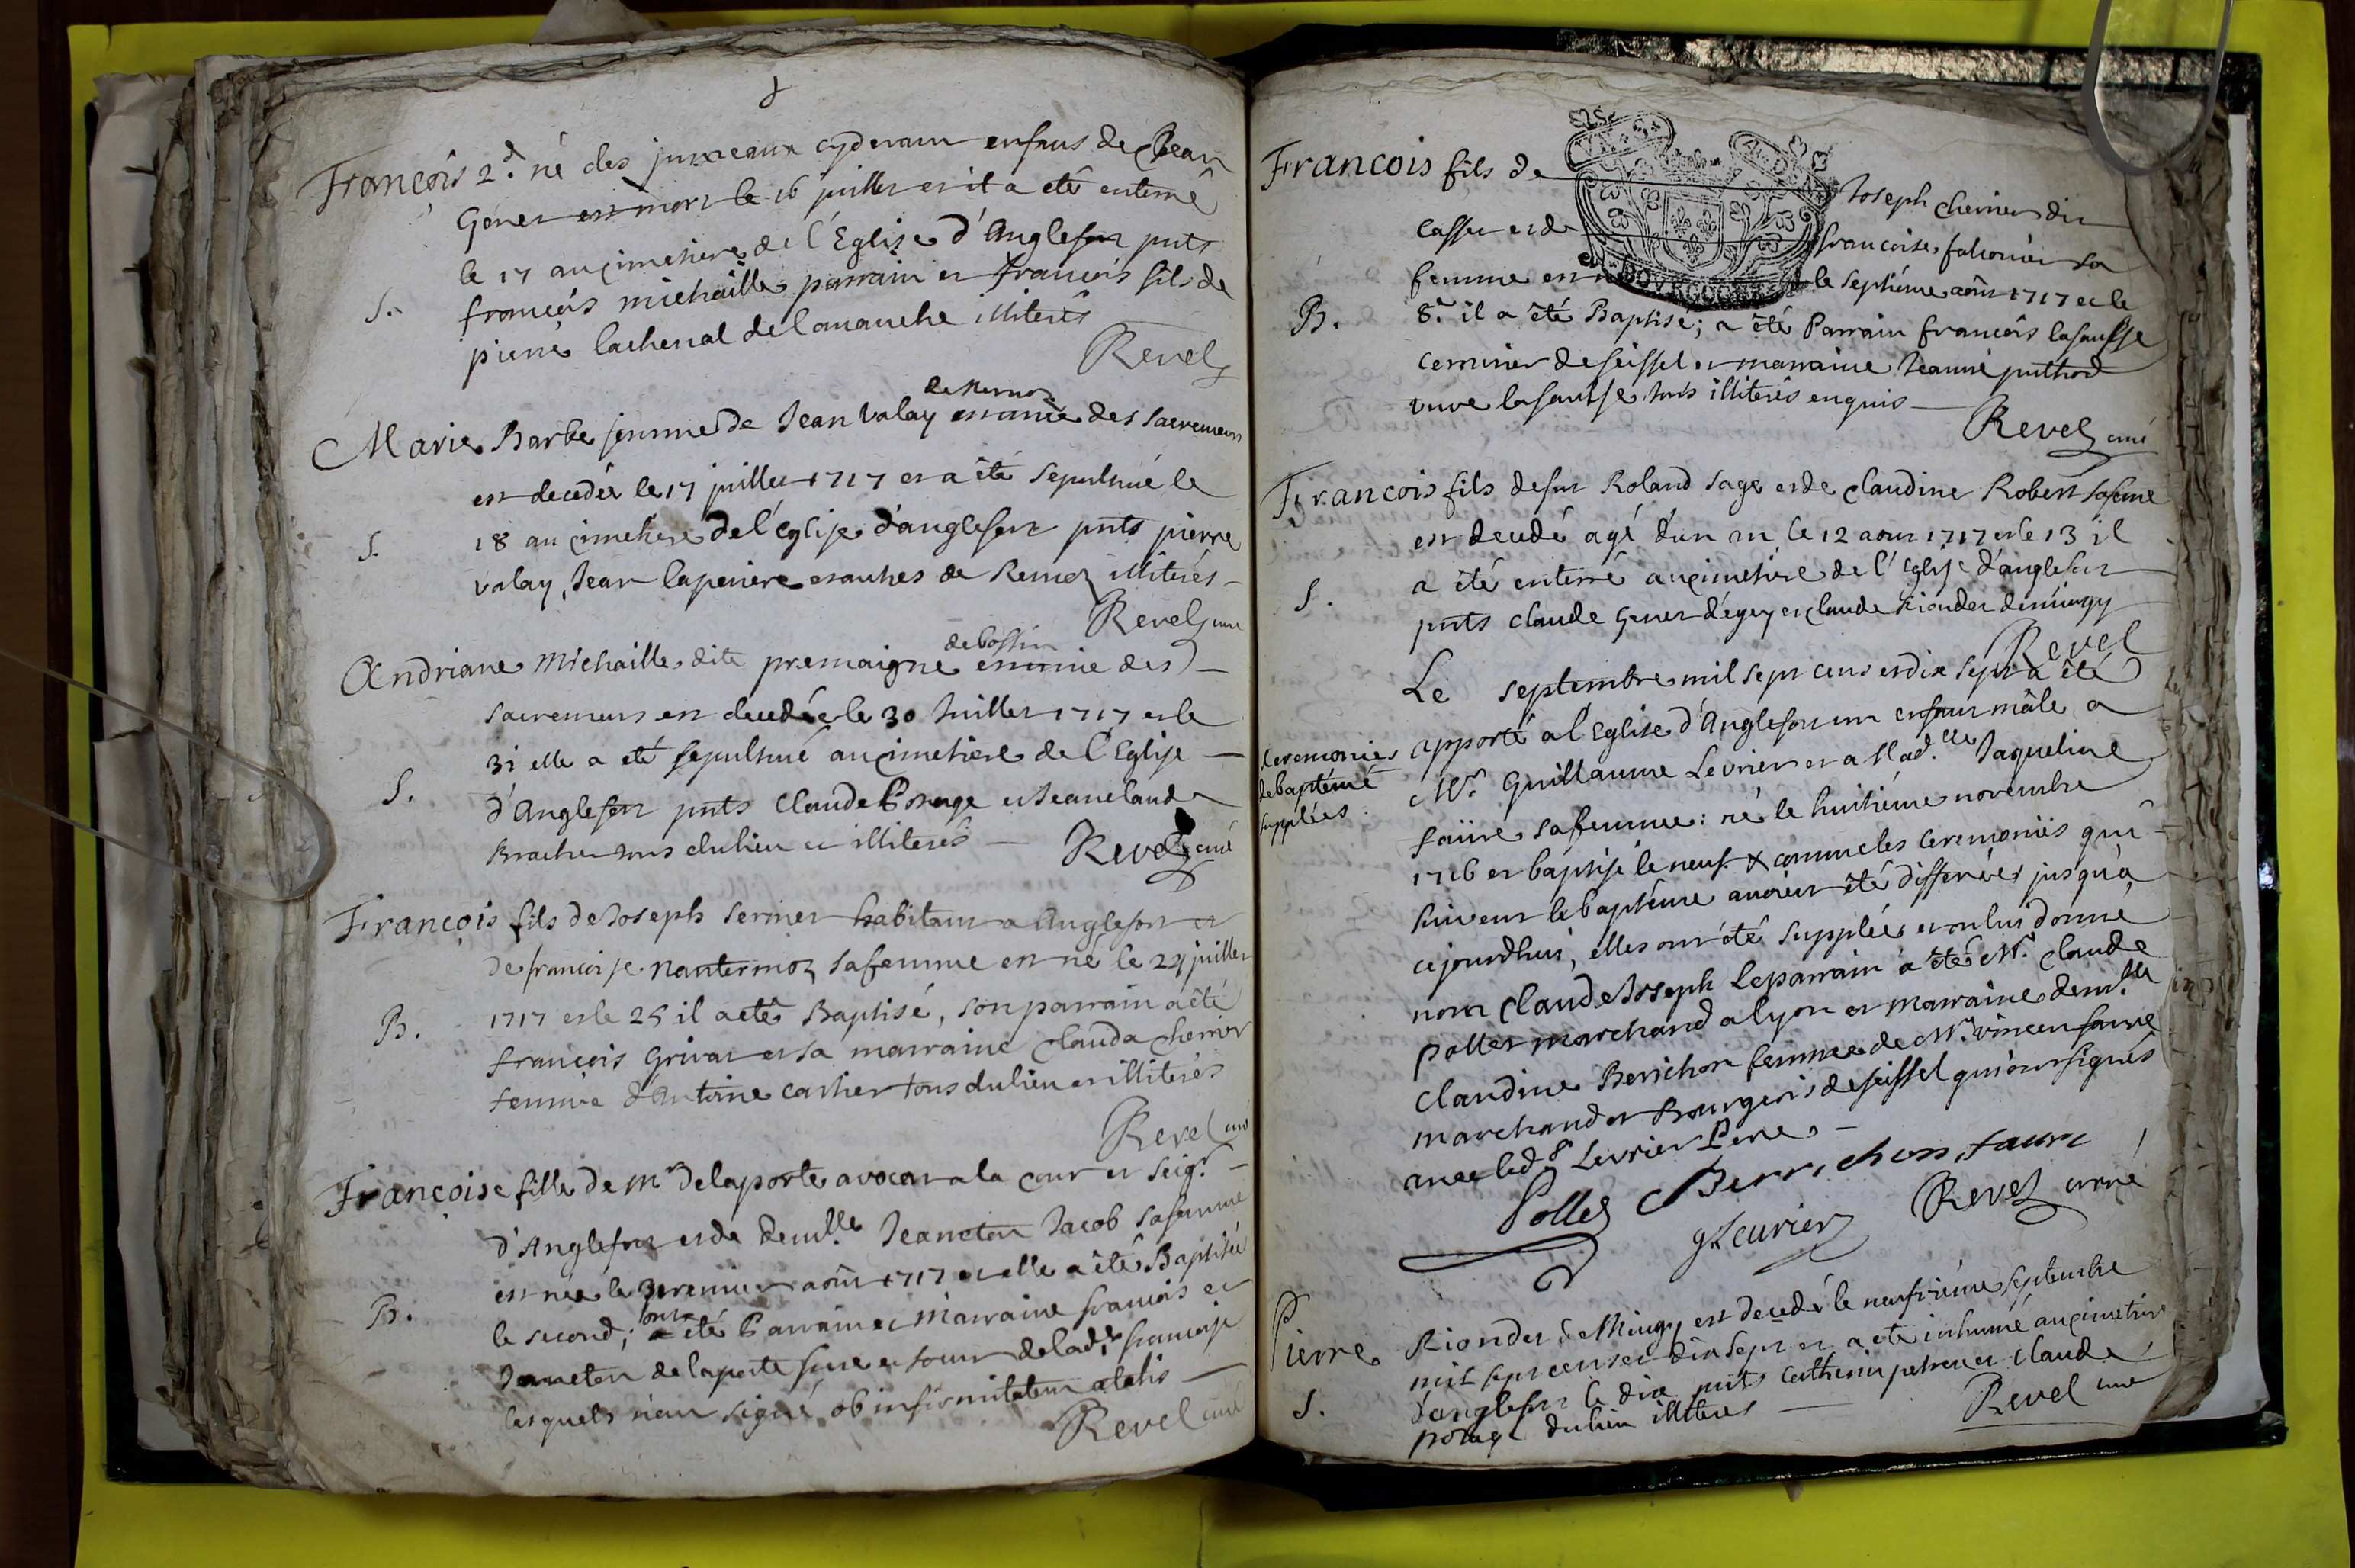 François 2.d né des jumeaux cydevant enfans de Jean
Genet est mort le 16 juillet et il a eté enterré
le 17 au cimetiere de l'Eglise d'Anglefort pnts
S. françois michaille parrain et françois fils de
pierre lachenal de lavanche illiterés
Revel
de Remoz
Marie Barbe femme de Jean Valay munie des sacremens
est decedée le 17 juillet 1717 et a été sepulturé le
S. 18 au cimetiere de l'Eglise d'anglefort pnts pierre
valay, Jean laperiere et autres de Remoz illiterés
Revel curé
de bossin
Andriane Michaille dite premaigne munie des
sacremens est decedée le 30 Juillet 1717 et le
31 elle a eté sepulturé au cimetiere de l'Eglise
S. d'Anglefort pnts Claude Porage et Jeanclaude
Brachet tous du lieu et illiterés
Revel curé
François fils de Joseph Sermet habitant a Anglefort et
de françoise Nantermoz sa femme est né le 24 juillet
B. 1717 et le 25 il a eté Baptisé, son parrain a été
françois Grivat et sa marraine Clauda Cherier
femme d'Antoine cathet tous du lieu et illiterés
Revel curé
Françoise fille de mr Delaporte avocat a la cour et Seigr
d'Anglefort et de demlle Jeaneton Jacob sa femme
est née le premier août 1717 et elle a été Baptisée
ont
B. le second; a été Parrain et Marraine francois et
Janneton de laporte frere et soeur de lade françoise
lesquels n'ont signé ob infirmitatem aetatis
Revel curé
François fils de Joseph cherier dit
casset et de francoise falconier sa
femme est né le septiéme août 1717 et le
B. 8.e il a été Baptisé; a été Parrain françois lasausse
de seissel et marraine Jeanne puthod
veuve lasausse tous illiterés enquis
Revel curé
François fils de fut Roland Sage et de Claudine Robert sa feme
est decedé agé d'un an le 12 aout 1717 et le 13 il
a été enterré au cimetiere de l'Eglise d'anglefort
S. pnts claude Genet d'égey et claude Riondet demingy
Revel
Le septembre mil sept cens et dix sept a été
Ceremonies apporté a l'Eglise d'Anglefort un enfant mâle a
de baptême Mr. Guillaume Levrier et a Mad.elle Jaqueline
supplées faure sa femme: né le huitiéme novembre
1716 et baptisé le neuf & comme les ceremonies qui
suivent le baptême avoient été differées jusqu'a
cejourdhui, elles ont été supplées et on lui donne
nom Claude Joseph Le parrain a été Mr. Claude
pollet marchand a lyon et marraine dem.lle
Claudine Berichon femme de Mr. vincent faure
marchand et Bourgeois de seissel qui ont signés
avec led.r Levrier Pere
Pollet Berrichon faure
G Leurier Revel curé
Pierre Riondet de Mingy est decedé le neufviéme septembre
mil sept cens et dix sept et a eté inhumé au cimetiere
S. d'anglefort le dix pnts Catherin petret et claude
porage du lieu illiterés
Revel curé